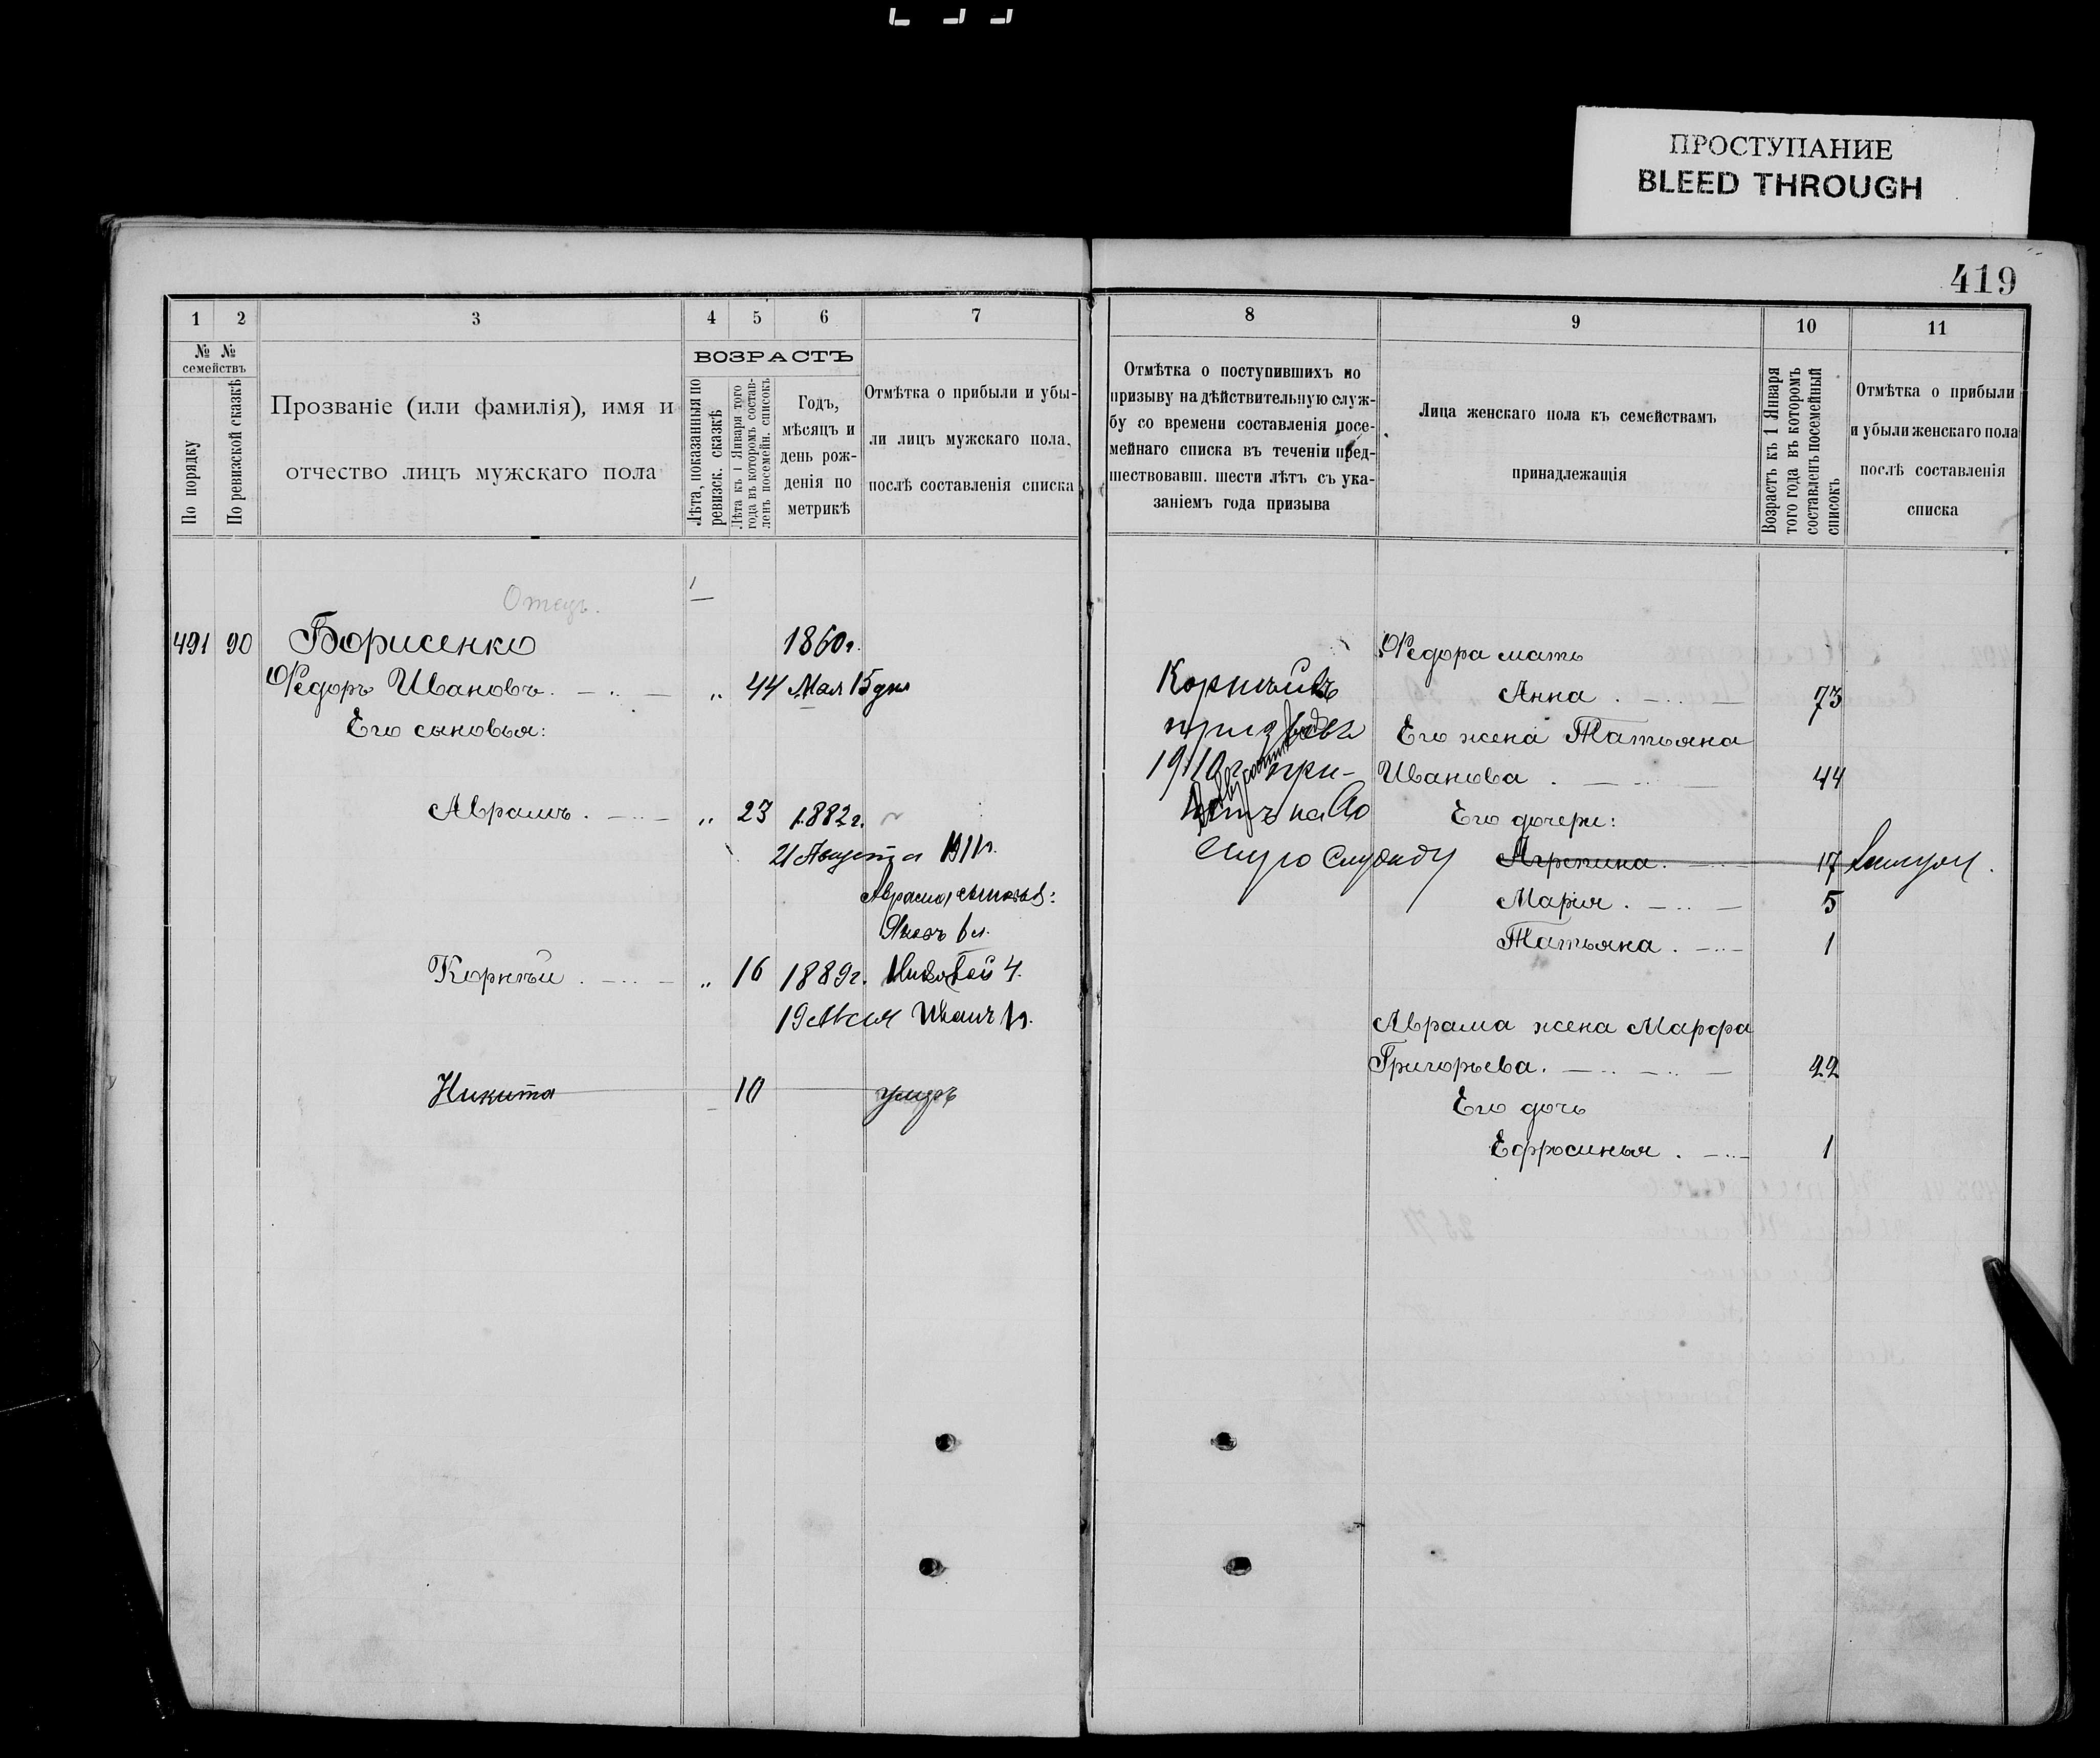 ПРОСТУПАНИЕ
BLEED THROUGH
419
1 2 3 4 5 6 7
№ № семействъ
По порядку
По ревизской сказкѣ
Прозваніе (или фамилія), имя и
отчество лицъ мужскаго пола
ВОЗРАСТЪ
Лѣта, показанныя по
ревизск. сказкѣ
Лѣта къ 1 Января того
года въ которомъ состав-
ленъ посемейн. списокъ
Годъ,
мѣсяцъ и
день рож-
денія по
метрикѣ
Отмѣтка о прибыли и убы-
ли лицъ мужскаго пола,
послѣ составленія списка
Отецъ.
1
491 90 Борисенко 1860г.
Ѳедоръ Ивановъ. „ 44 Мая 15 дня
Его сыновья:
Аврамъ. „ 23 1882г.
21 Августа 1911г.
Аврама сыновья:
Яковъ 6 л.
Корнѣй. „ 16 1889г. Николай 4.
19 Мая Иванъ 1г.
Никита 10 умеръ
8 9 10 11
Отмѣтка о поступившихъ по
призыву на дѣйствительную служ-
бу со времени составленія посе-
мейнаго списка въ теченіи пред-
шествовавш. шести лѣтъ съ ука-
заніемъ года призыва
Лица женскаго пола къ семействамъ
принадлежащія
Возрастъ къ 1 Января
того года въ которомъ
составленъ посемейный
списокъ
Отмѣтка о прибыли
и убыли женскаго пола
послѣ составленія
списка
Корнѣй въ
1910г. при-
нятъ на
службу
Ѳедора мать
Анна. 73
Его жена Татьяна
Иванова. 44
Его дочери:
Агрепина. 17
Марія. 5
Татьяна. 1
Аврама жена Марфа
Григорьева. 22
Его дочь
Ефросинья. 1